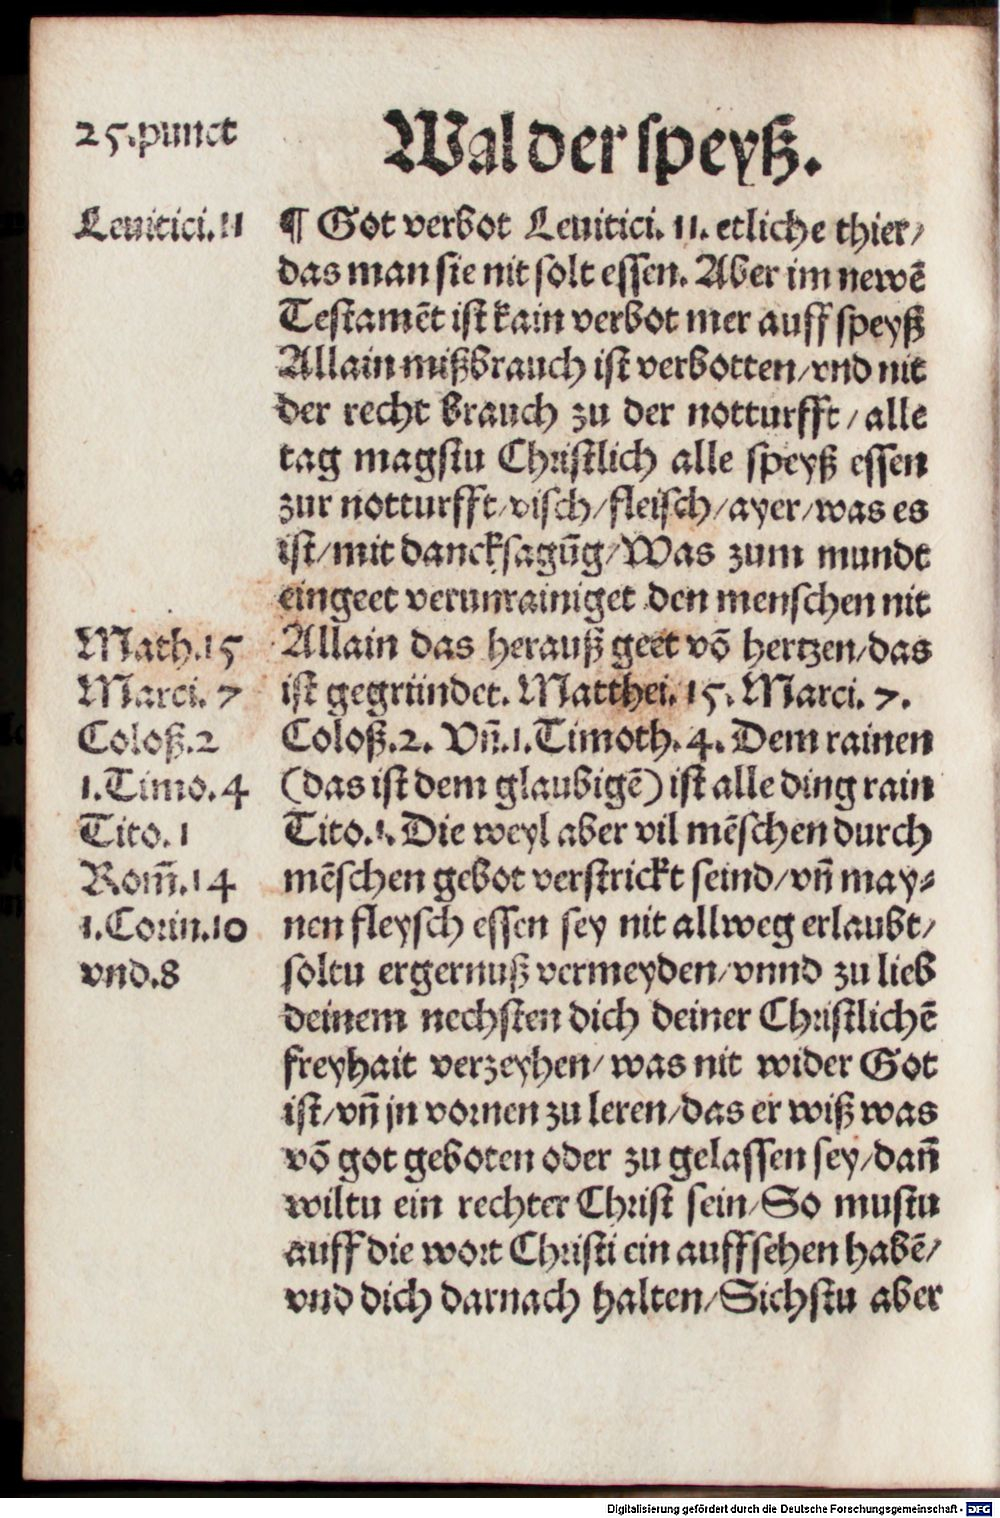 25.punct
Wal der speyß.
Leuitici.11
¶ Got verbot Leuitici. 11. etliche thier/
das man sie nit solt essen. Aber im newẽ
Testamẽt ist kain verbot mer auff speyß
Allain mißbrauch ist verbotten/vnd nit
der recht brauch zu der notturfft/alle
tag magstu Christlich alle speyß essen
zur notturfft/visch/fleisch/ayer/was es
ist/mit dancksagũg/Was zum mundt
eingeet verunrainiget den menschen nit
Math.15
Allain das herauß geet võ hertzen/das
Marci. 7
ist gegründet. Matthei. 15. Marci. 7.
Coloß.2
Coloß.2. Vñ.1.Timoth.4. Dem rainen
1.Timo.4
(das ist dem glaubigẽ) ist alle ding rain
Tito.1
Tito.1. Die weyl aber vil mẽschen durch
Rom̃.14
mẽschen gebot verstrickt seind/vñ may⸗
1.Corin.10
nen fleysch essen sey nit allweg erlaubt/
vnd.8
soltu ergernuß vermeyden/vnnd zu lieb
deinem nechsten dich deiner Christlichẽ
freyhait verzeyhen/was nit wider Got
ist/vñ jn vornen zu leren/das er wiß was
võ got geboten oder zu gelassen sey/dañ
wiltu ein rechter Christ sein/So mustu
auff die wort Christi ein auffsehen habẽ/
vnd dich darnach halten/Sichstu aber
Digitalisierung gefördert durch die Deutsche Forschungsgemeinschaft - DFG